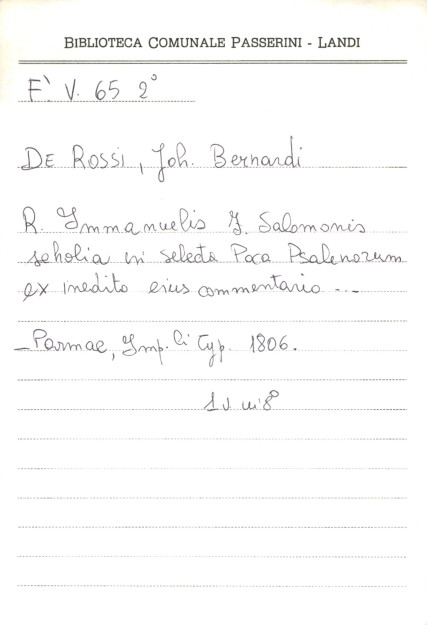 BIBLIOTECA COMUNALE PASSERINI - LANDI
F` V. 65 2°
DE ROSSI, Joh. Bernardi
R. Immanuelis J. Salomonis
scholia in selecta Poca Psalmorum
ex inedito eius commentario ...
- Parmae, Imp.li Typ. 1806.
1 v in 8°